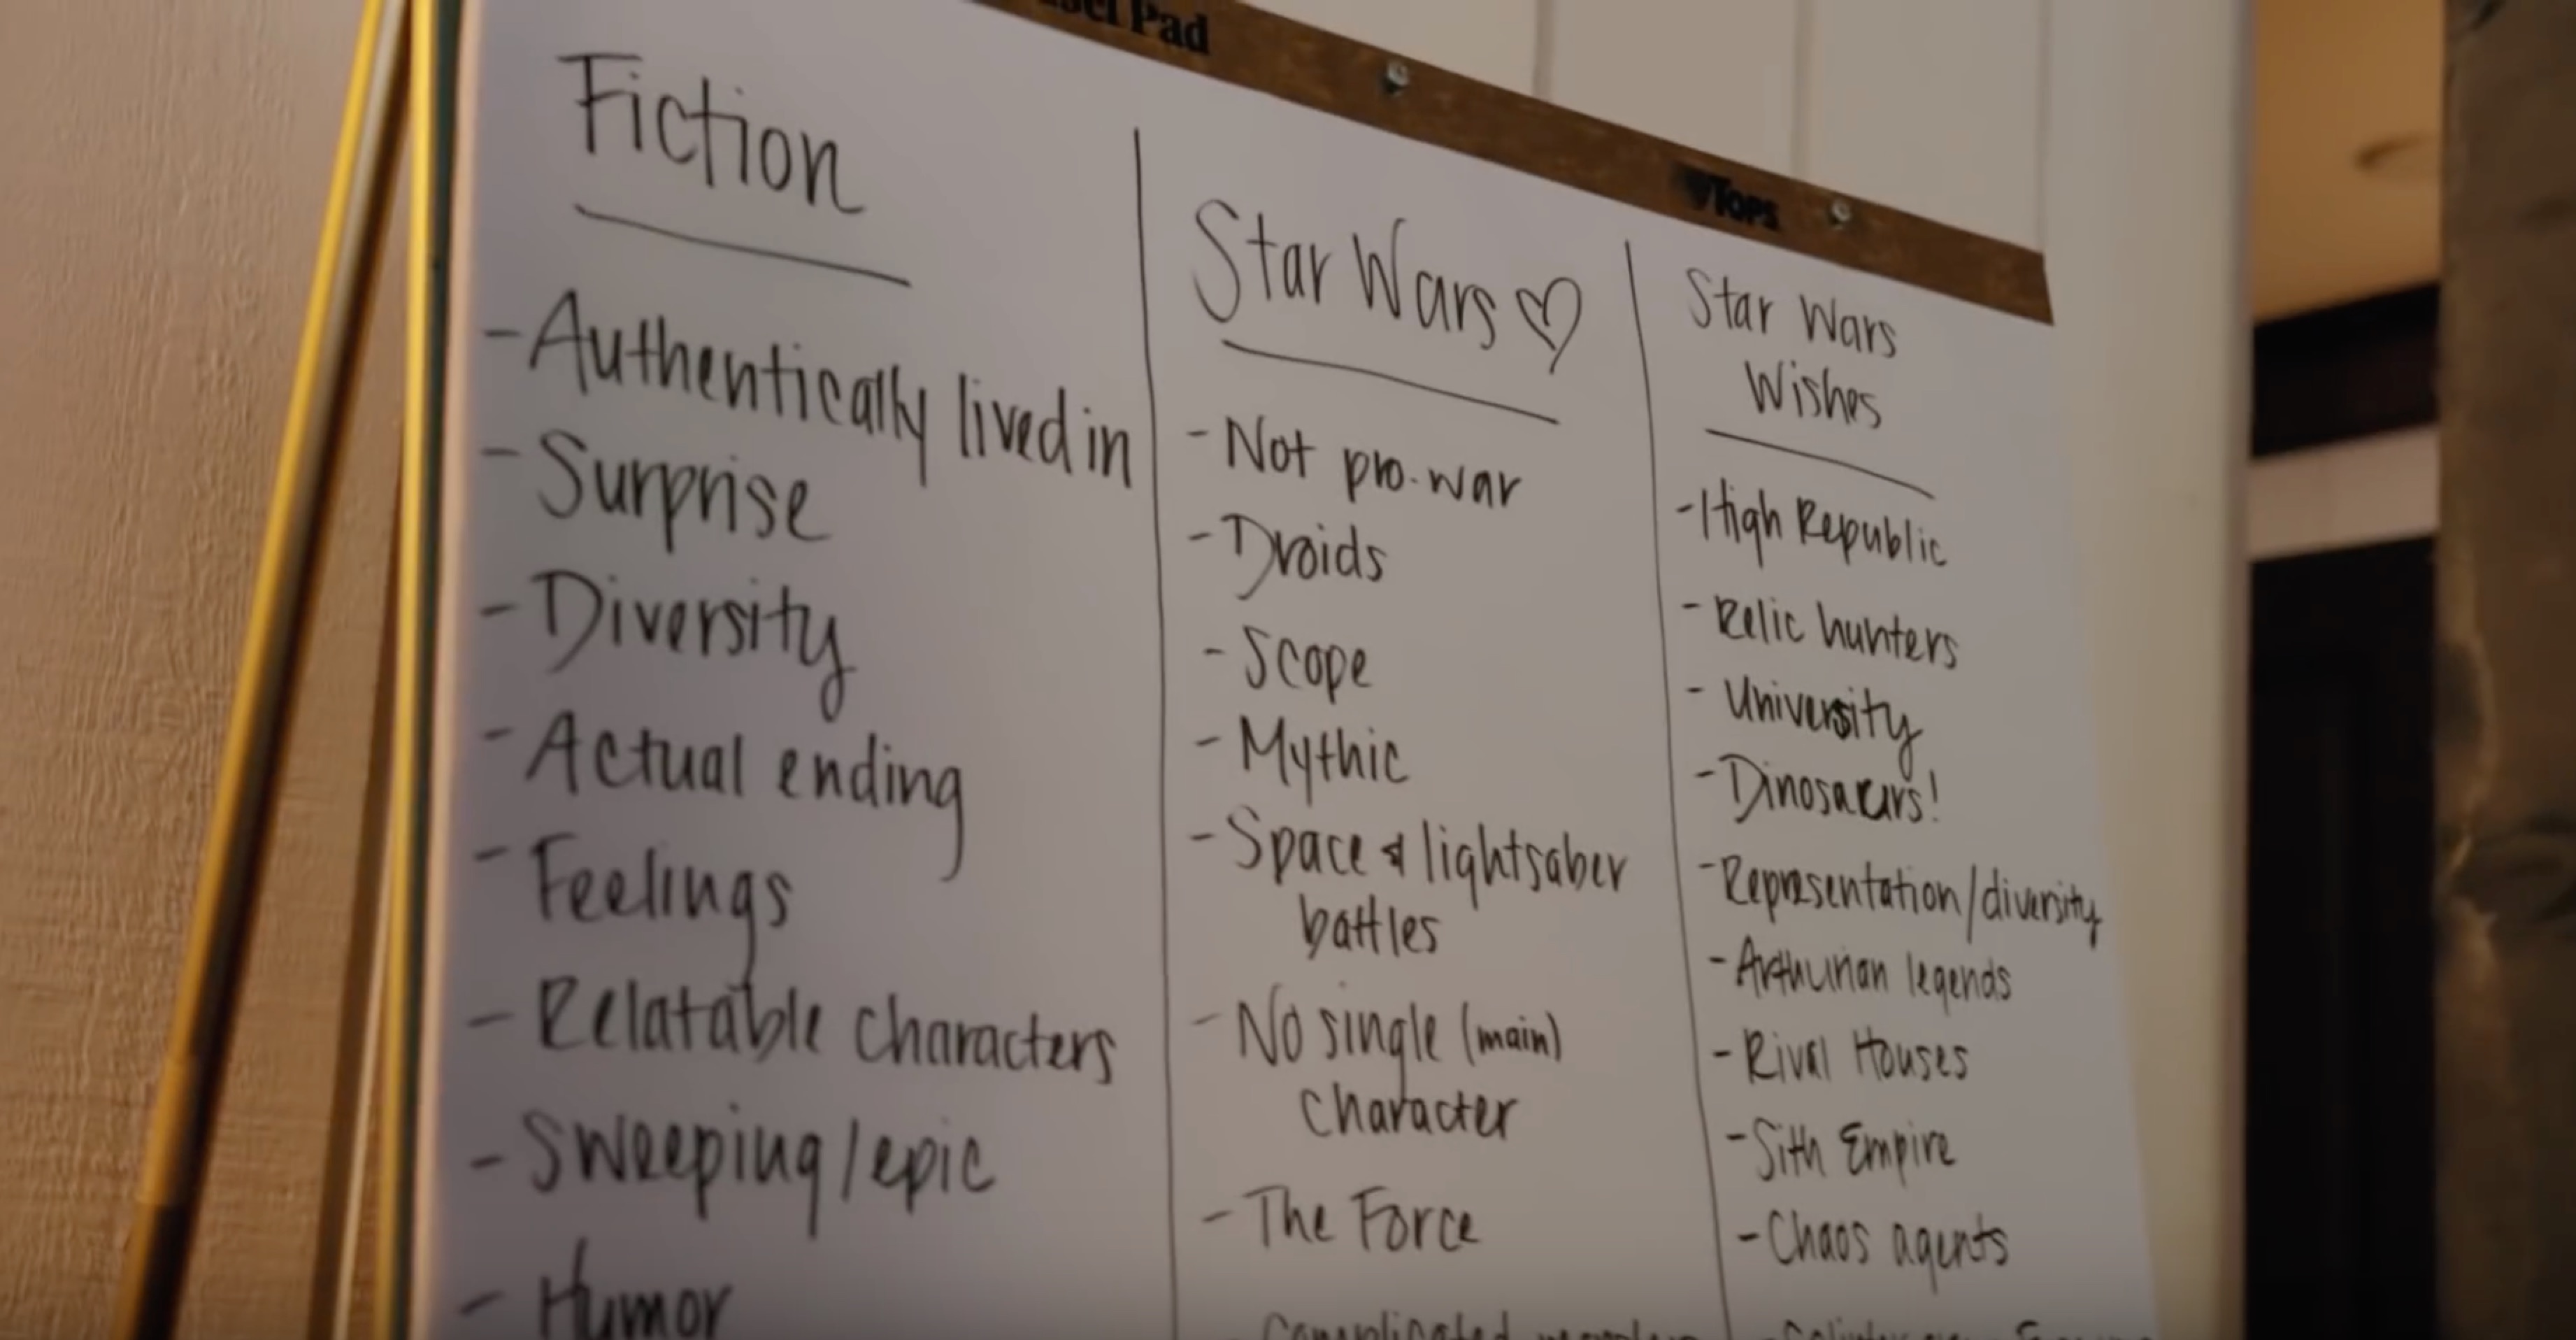 Pad
Tops
Fiction
- Authentically lived in
- Surprise
- Diversity
- Actual ending
- Feelings
- Relatable characters
- Sweeping/epic
- Humor
Star Wars ♡
- Not pro-war
- Droids
- Scope
- Mythic
- Space & lightsaber
battles
- No single (main)
character
- The Force
Complicated
Star Wars
Wishes
- High Republic
- Relic hunters
- University
- Dinosaurs!
- Representation/diversity
- Arthurian legends
- Rival Houses
- Sith Empire
- Chaos agents